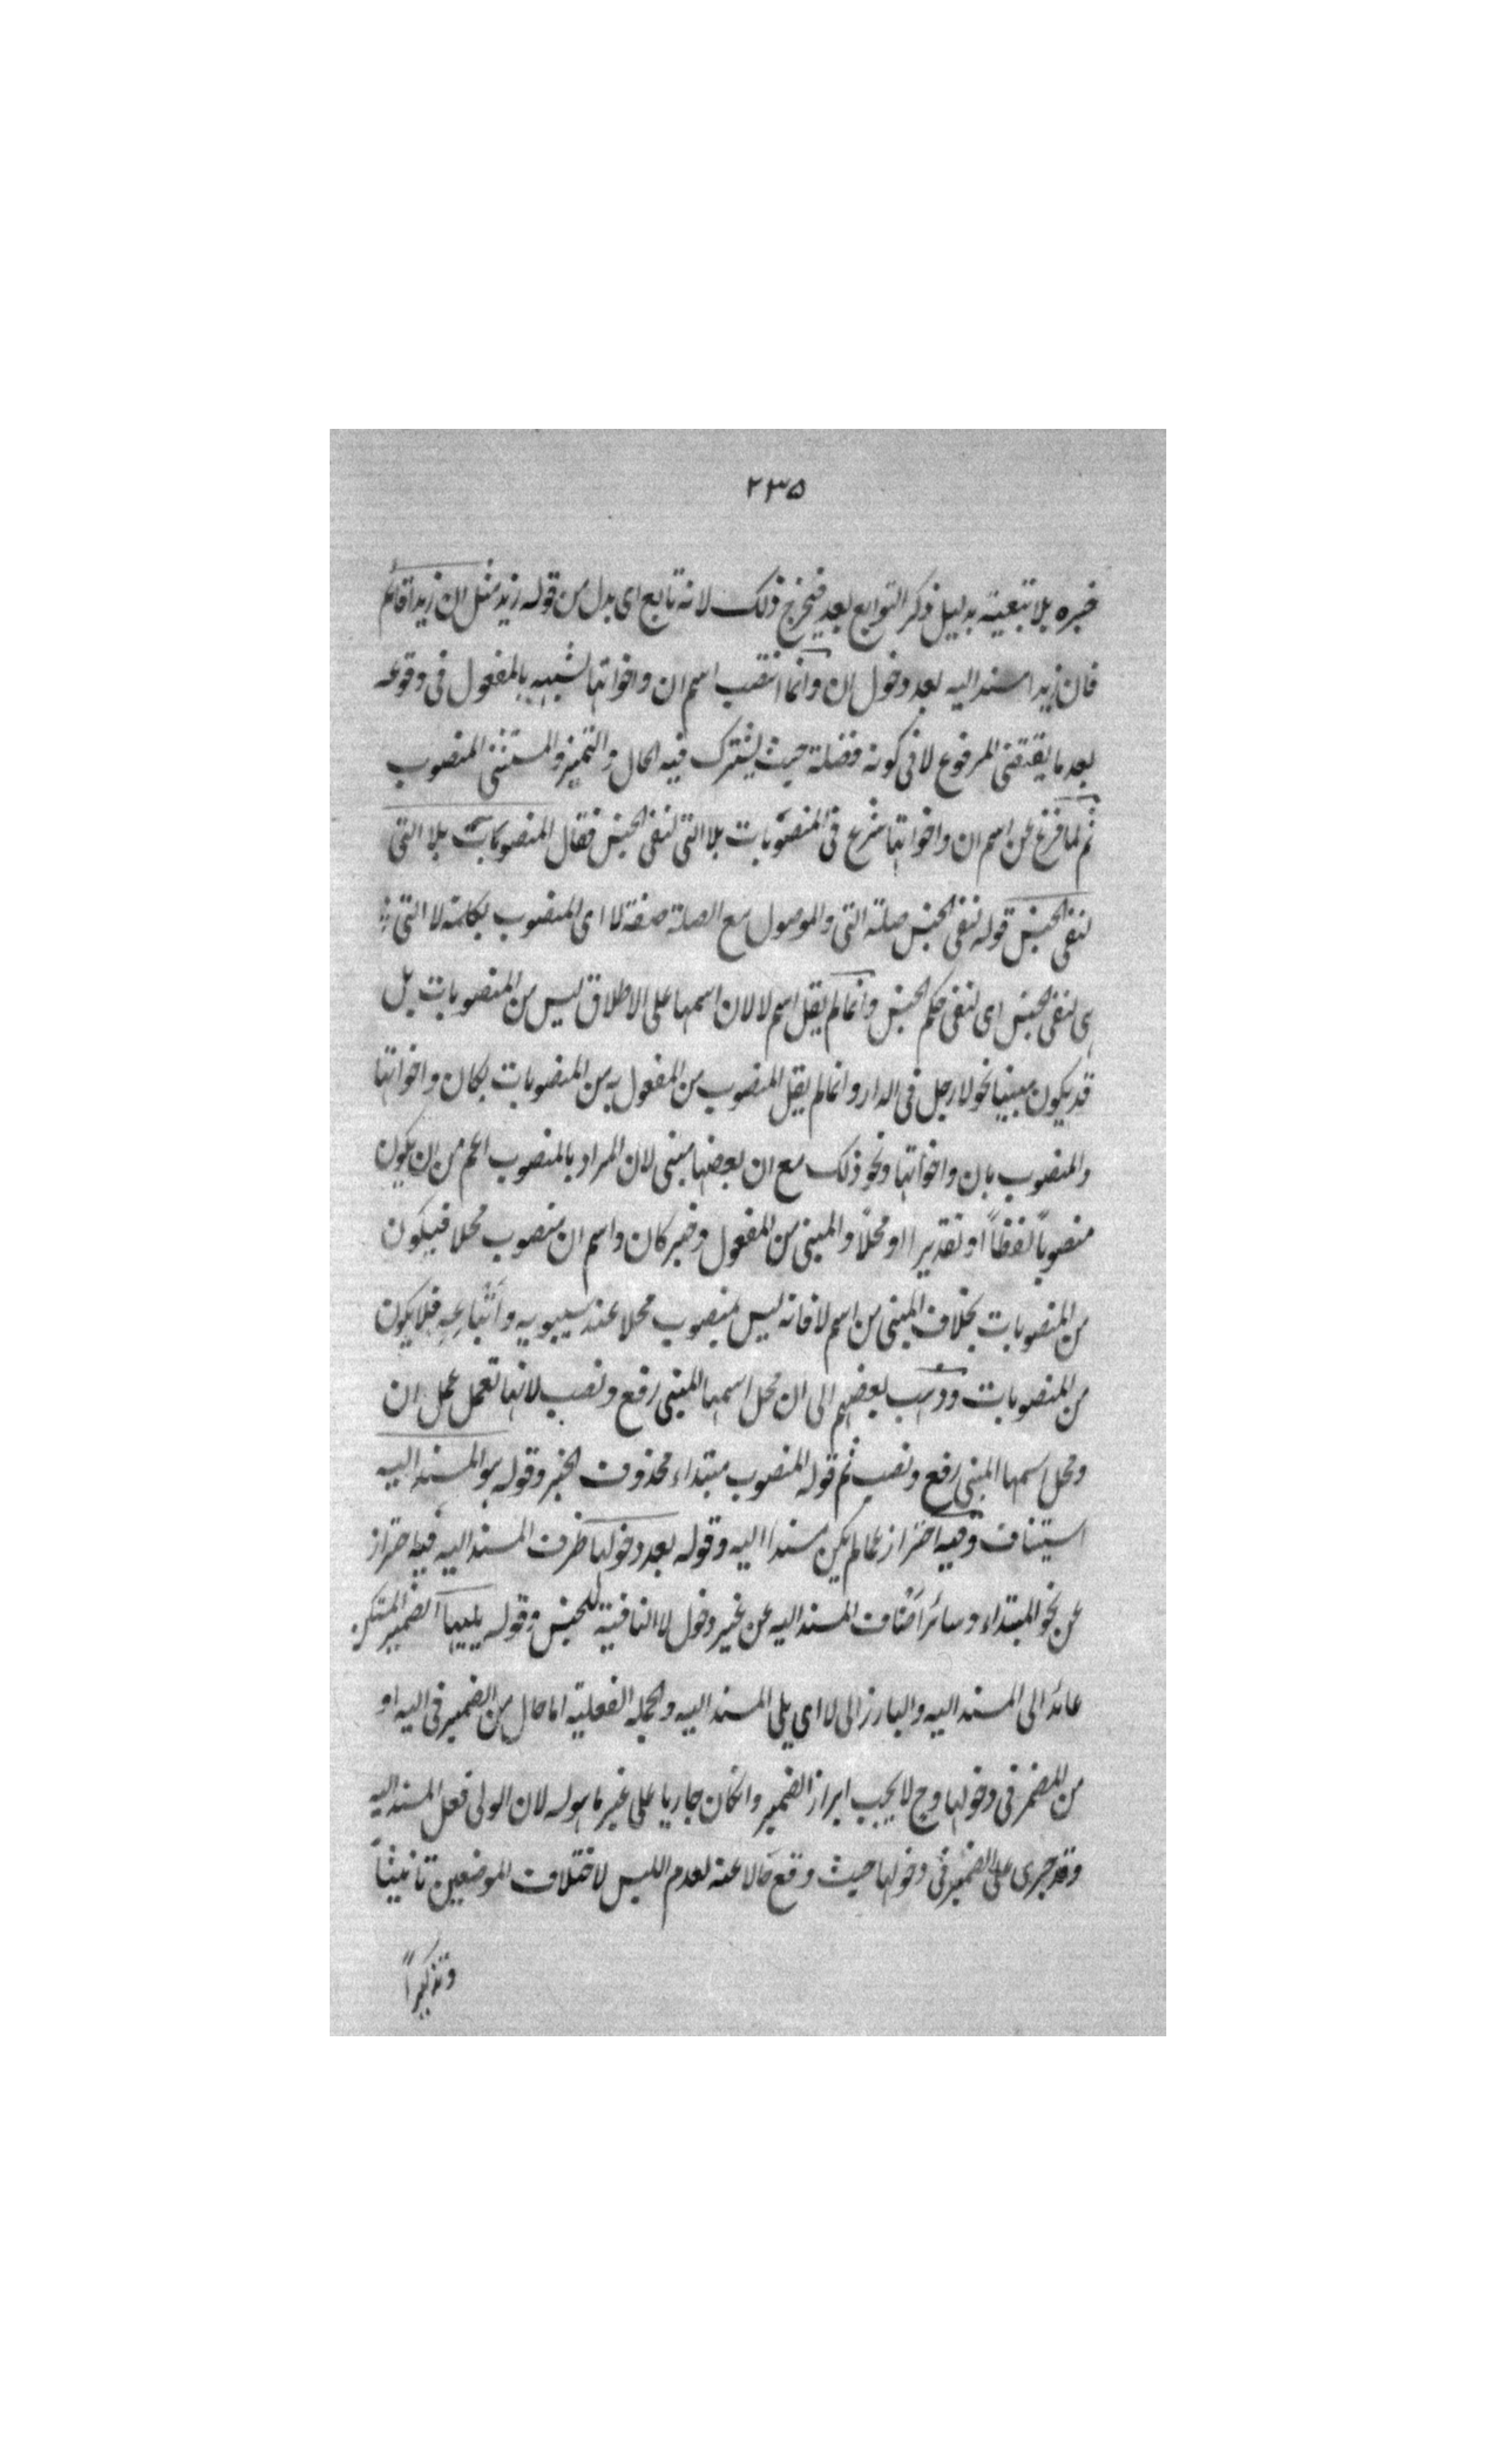 ۲۳۵
خبره بلا تبعية بدليل ذكر التوابع بعد فيخرج ذلك لانه تابع اى بدل من قوله زيد مثل ان زيدا قائم
فان زيدا سند اليه بعد دخول ان وانما انتصب اسم ان واخواتها لشبهه بالمفعول فى وقوعه
بعد ما يقتضى المرفوع لا فى كونه فضلة حيث يشترك فيه الحال والتميز والمستثنى المنصوب
ثم لما فرغ عن اسم ان واخواتها شرع فى المنصوبات بلا التى لنفى الجنس فقال المنصوبات بلا التى
لنفى الجنس قوله لنفى الجنس صلة التى والموصول مع الصلة صفة لا اى المنصوب بكلمة لا التى
هى لنفى الجنس اى لنفى حكم الجنس وانما لم يقل اسم لا لان اسمها على الاطلاق ليس من المنصوبات بل
قد يكون مبنيا نحو لا رجل فى الدار وانما لم يقل المنصوب من المفعول به من المنصوبات بكان واخواتها
والمنصوب بان واخواتها ونحو ذلك مع ان بعضها مبنى لان المراد بالمنصوب اعم من ان يكون
منصوباً لفظاً او تقديرا او محلاً والمبنى من المفعول وخبر كان واسم ان منصوب محلا فيكون
من المنصوبات بخلاف المبنى من اسم لا فانه ليس بمنصوب محلا عند سيبويه واتباعه فلا يكون
من المنصوبات وذهب بعضهم الى ان محل اسمها المبنى رفع ونصب لانها تعمل عمل ان
ومحل اسمها المبنى رفع ونصب ثم قوله المنصوب مبتداء محذوف الخبر وقوله هو المسند اليه
استيناف وفيه احتراز عما لم يكن مسندا اليه وقوله بعد دخولها ظرف المسند اليه فيه احتراز
عن نحو المبتداء وسائر اصناف المسند اليه عن غير دخول لا النافية للجنس وقوله يليها الضمير المستكن
عائد الى المسند اليه والبارز الى لا اى يلى المسند اليه والجملة الفعلية اما حال من الضمير فى اليه او
من المضمر فى دخولها وح لا يجب ابراز الضمير وانكان جاريا على غير ما هو له لان الولى فعل المسند اليه
وقد جرى على الضمير فى دخولها حيث وقع حالا عنه لعدم اللبس لاختلاف الموضعين تانيثاً
وتذكيراً